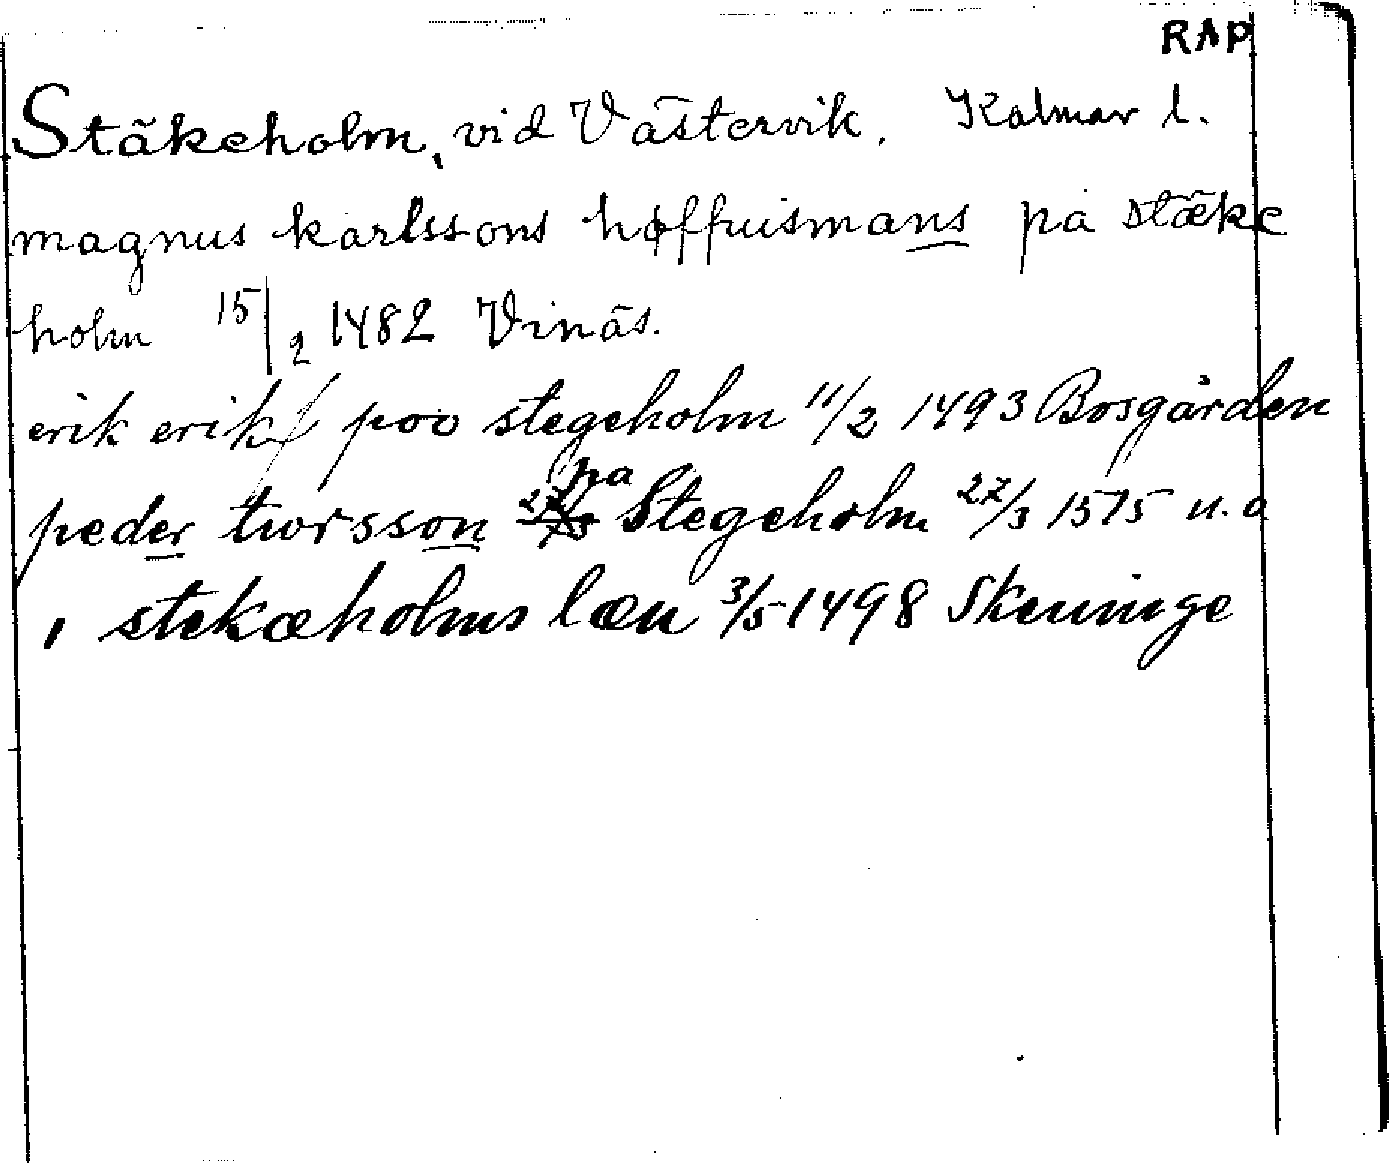 RAP
Stäkeholm, vid Västervik. Kalmar l.
magnus karlssons høffuismans pa stæke
holm 15/2 1482 Vinäs.
erik erik poo stegeholm 11/2 1493 Bosgården
pa
peder twrsson Stegeholm 27/3 1515 u.o
i stekæholms læn 3/5 1498 Skeninge